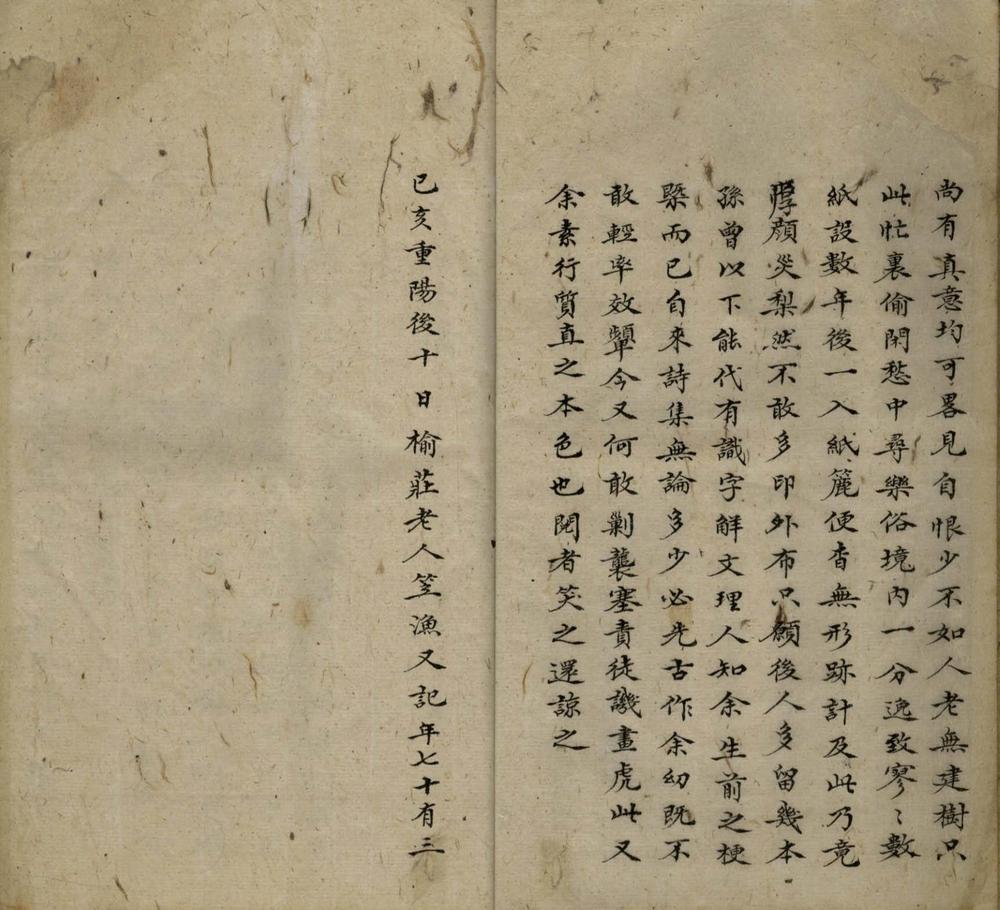 尚有真意均可畧見自恨少不如人老無建樹只
此忙裏偷閑愁中尋樂俗境內一分逸致寥〻數
紙設數年後一入紙簏便杳無形跡計及此乃竟
厚顏災梨然不敢多印外布只願後人多留幾本
孫曾以下能代有識字解文理人知余生前之梗
槩而已自來詩集無論多少必先古作余幼既不
敢輕率效顰今又何敢剿襲塞責徒譏畫虎此又
余素行質直之本色也閱者笑之還諒之
己亥重陽後十日榆莊老人笠漁又記年七十有三